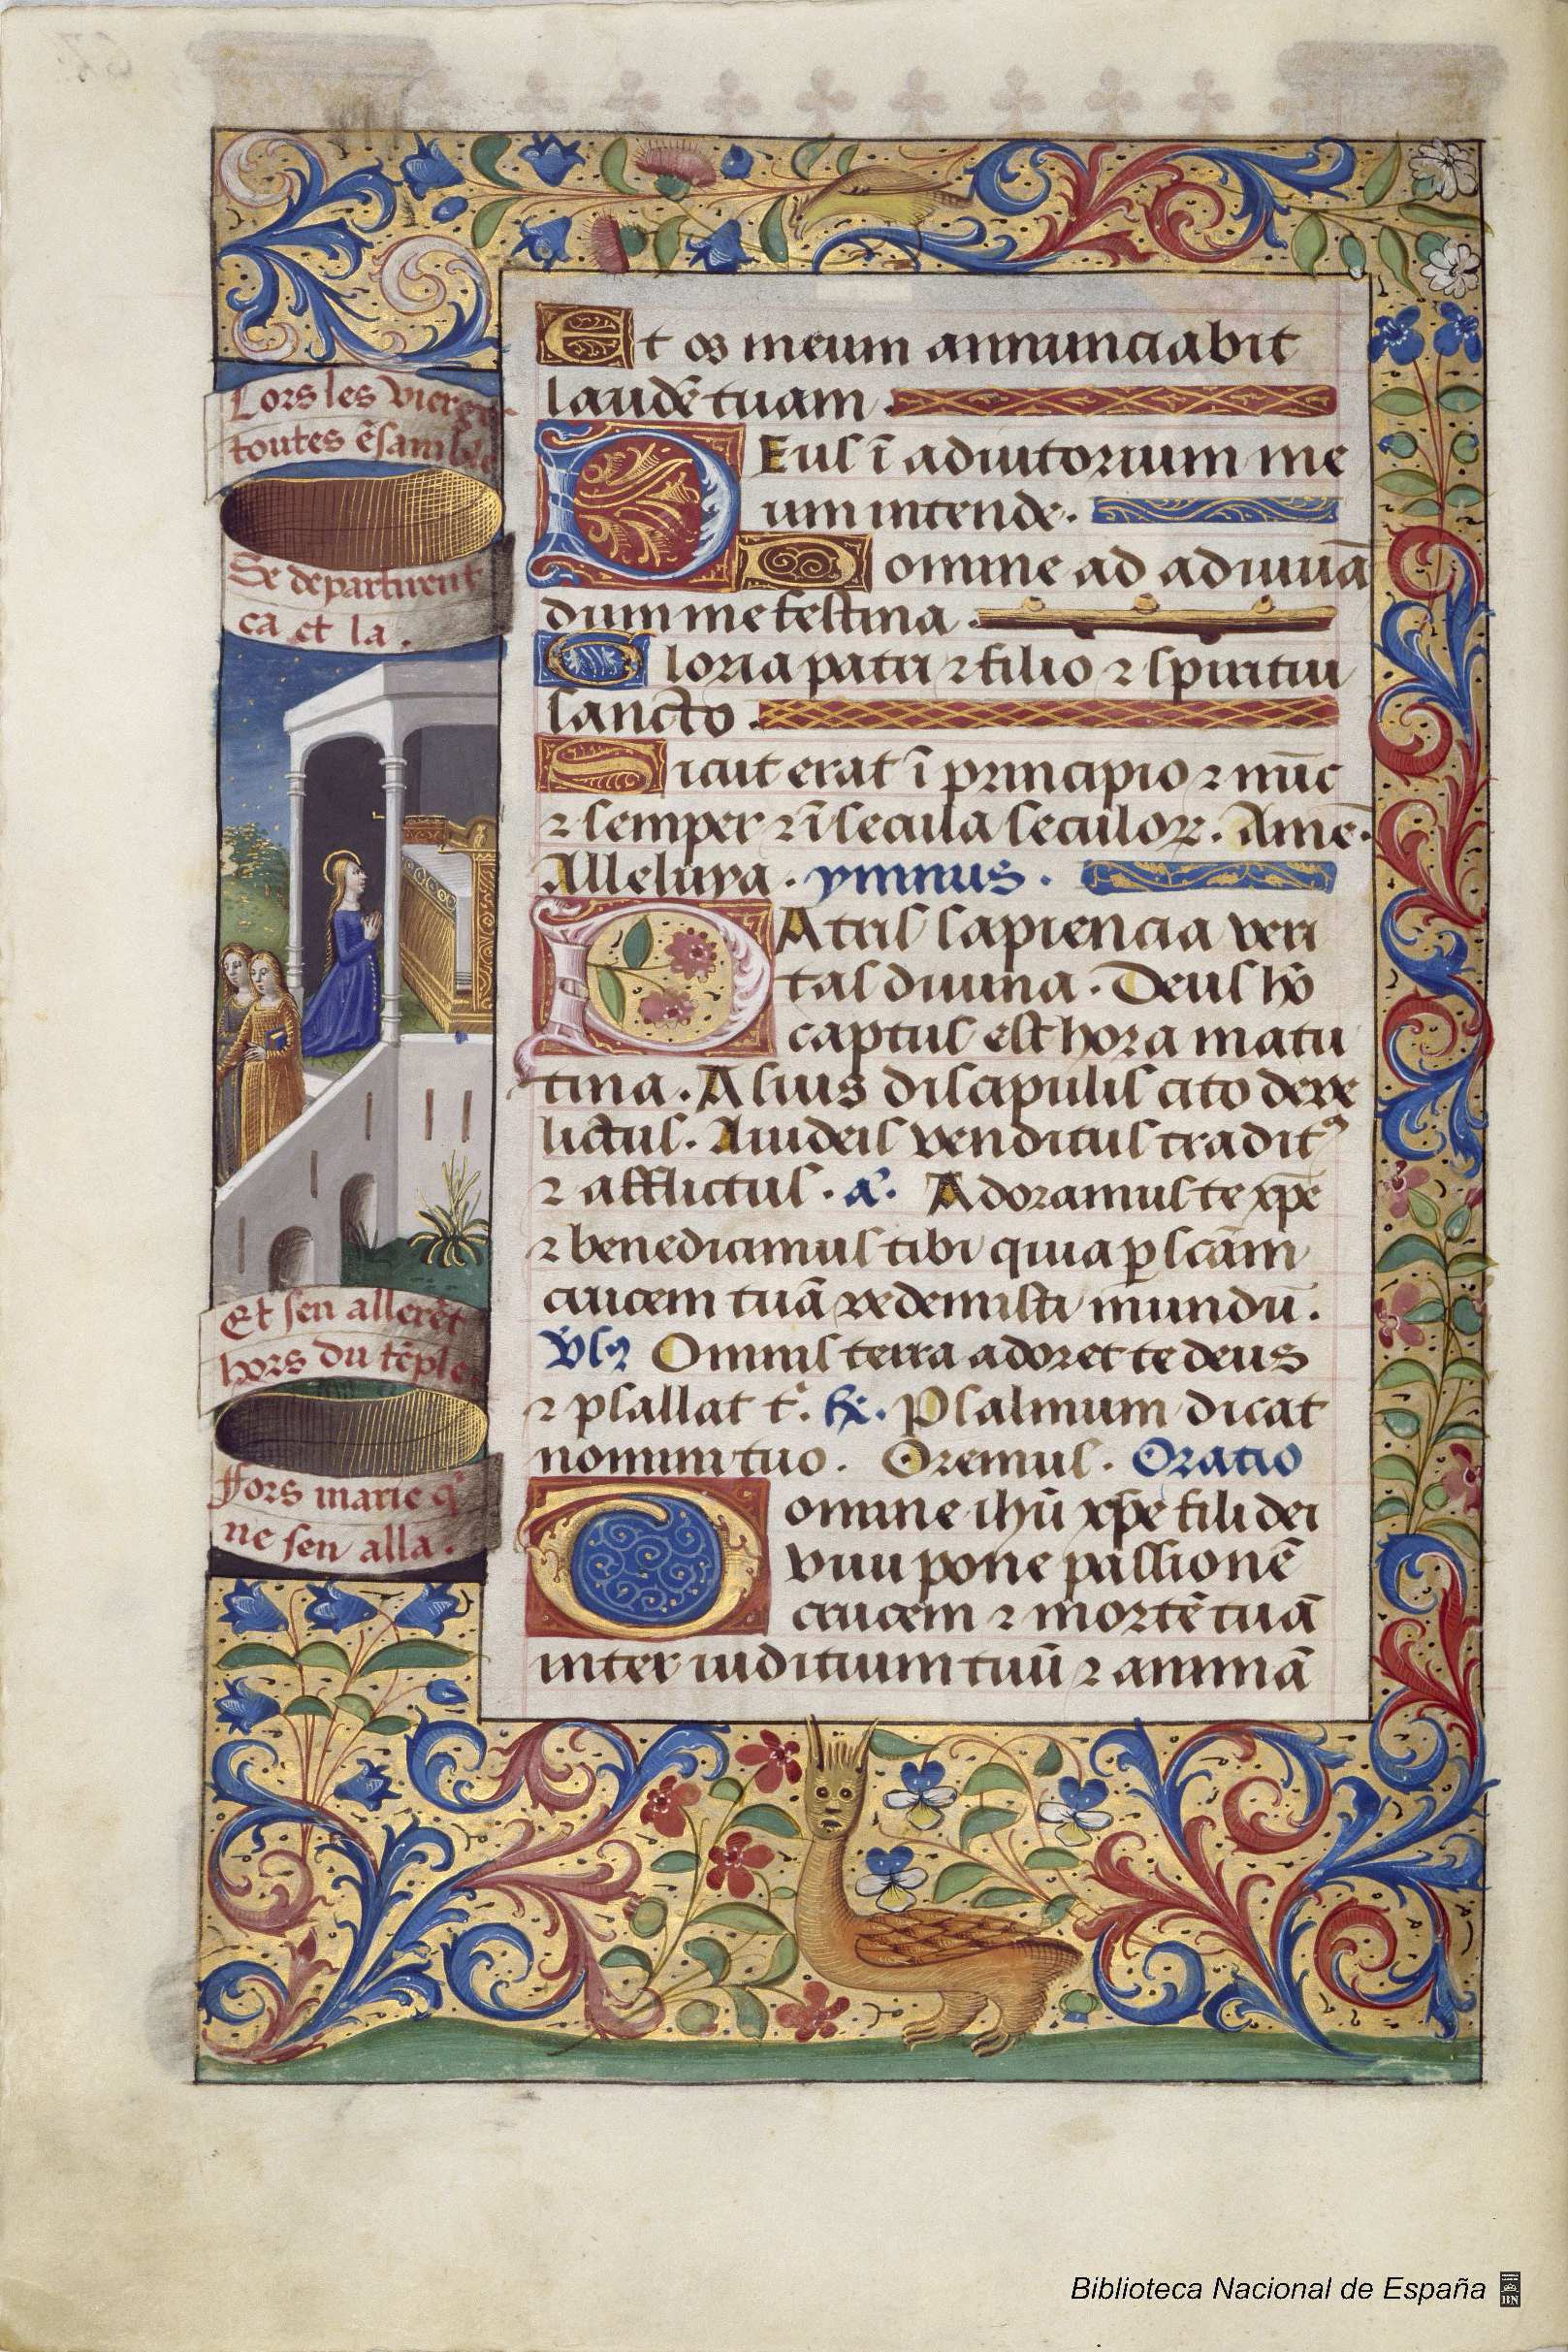 Lors les vierge
toutes ēsamble
Se departirent
ca et la.
Et sen allerēt
hors du tēple
Fors marie q̄
ne sen alla.
Et os meum annunciabit
laudē tuam.
DEus ī adiutorium me
um intende.
Domine ad adiuuā
dum me festina.
Gloria patri ⁊ filio ⁊ spiritui
sancto.
Sicut erat ī principio ⁊ nūc
⁊ semper ⁊ ī secula seculoꝝ. Amē.
Alleluya. ymnus.
PAtris sapiencia veri
tas diuina. Deus hō
captus est hora matu
tina. A suis discipulis cito dere
lictus. A iudeis venditus tradit᷒
⁊ afflictus. a᷒. Adoramus te xp̄e
⁊ benedicimus tibi quia ꝑ scām
crucem tuā redemisti mundū.
Vs᷒ Omnis terra adoret te deus
⁊ psallat t᷒. ℟. Psalmum dicat
nomini tuo. Oremus. Oratio
Domine ihū xp̄e fili dei
viui pone passionē
crucem ⁊ mortē tuā
inter iuditium tuū ⁊ animā
Biblioteca Nacional de España